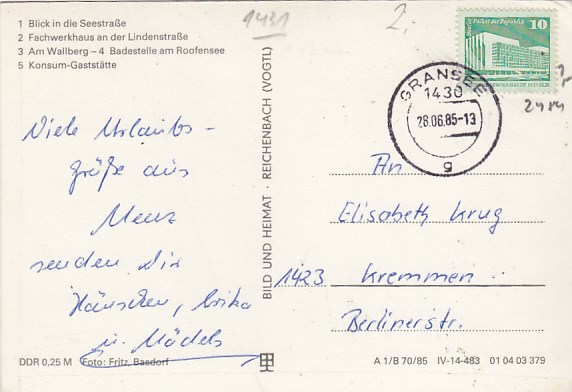 1 Blick in die Seestraße
2 Fachwerkhaus an der Lindenstraße
3 Am Wallberg – 4 Badestelle am Roofensee
5 Konsum-Gaststätte
1431
2,-
Palast der Republik 10
GRANSEE
1430
28.06.85-13
g
Viele Urlaubs-
grüße aus
Menz
senden Dir
Hänschen, Erika
u. Mädels
BILD UND HEIMAT · REICHENBACH (VOGTL)
An
Elisabeth Krug
1423 Kremmen
Berlinerstr.
DDR 0,25 M Foto: Fritz, Basdorf
A 1/B 70/85 IV-14-483 01 04 03 379